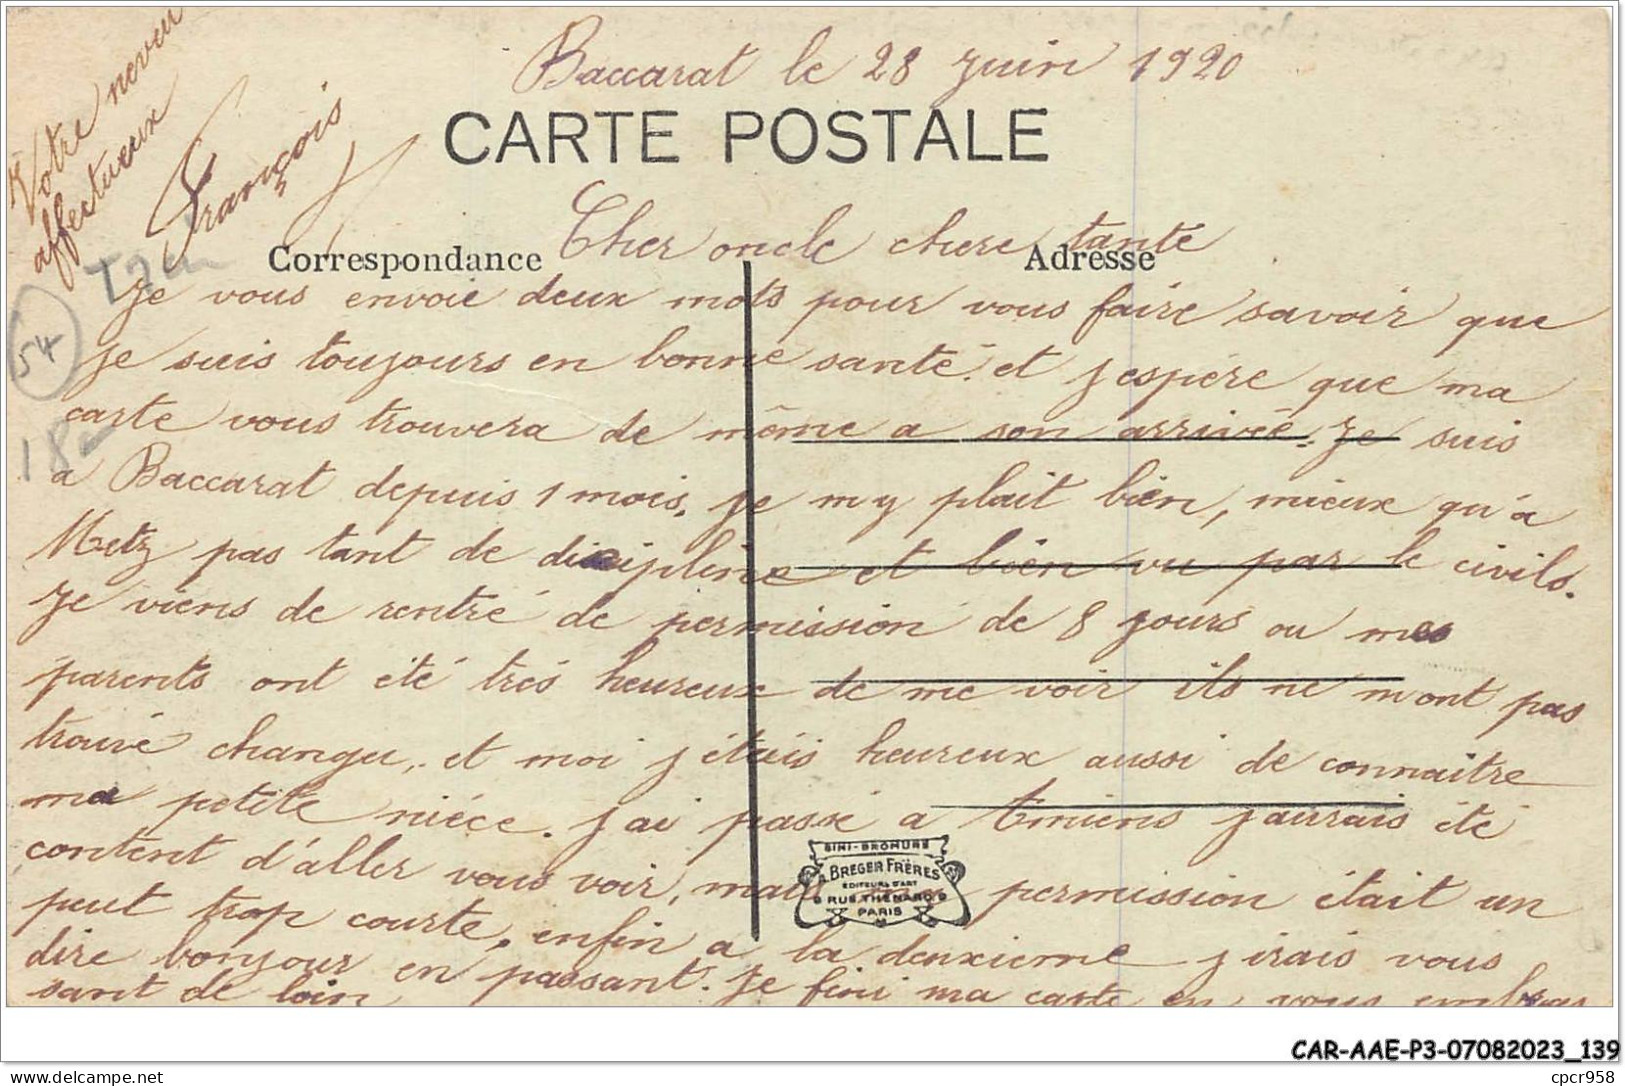 Baccarat le 28 Juin 1920
CARTE POSTALE
Votre neveu
affectueux
François
Correspondance
Cher oncle chere tante
Adresse
Je vous envoie deux mots pour vous faire savoir que
54
je suis toujours en bonne santé. et j espére que ma
carte vous trouvera de même a son arrivée. Je suis
18
a Baccarat depuis 1 mois. je m y plait bien, mieux qu'a
Metz pas tant de disipline et bien vu par le civils.
Je viens de rentré de permission de 8 jours ou mes
parents ont été trés heureux de me voir ils ne m ont pas
trouvé changer, et moi j étais heureux aussi de connaitre
ma petite niéce. j ai passé a Amiens j aurais été
content d'aller vous voir, mais ma permission était un
peut trop courte. enfin a la deuxieme j irais vous
dire bonjour en passant. Je fini ma carte en vous embras
sant de loin
SIMI-BROMURE
A. BREGER FRÈRES
ÉDITEURS D'ART
9 RUE THÉNARD 9
PARIS
CAR-AAE-P3-07082023_139
delcampe.net
cpcr958